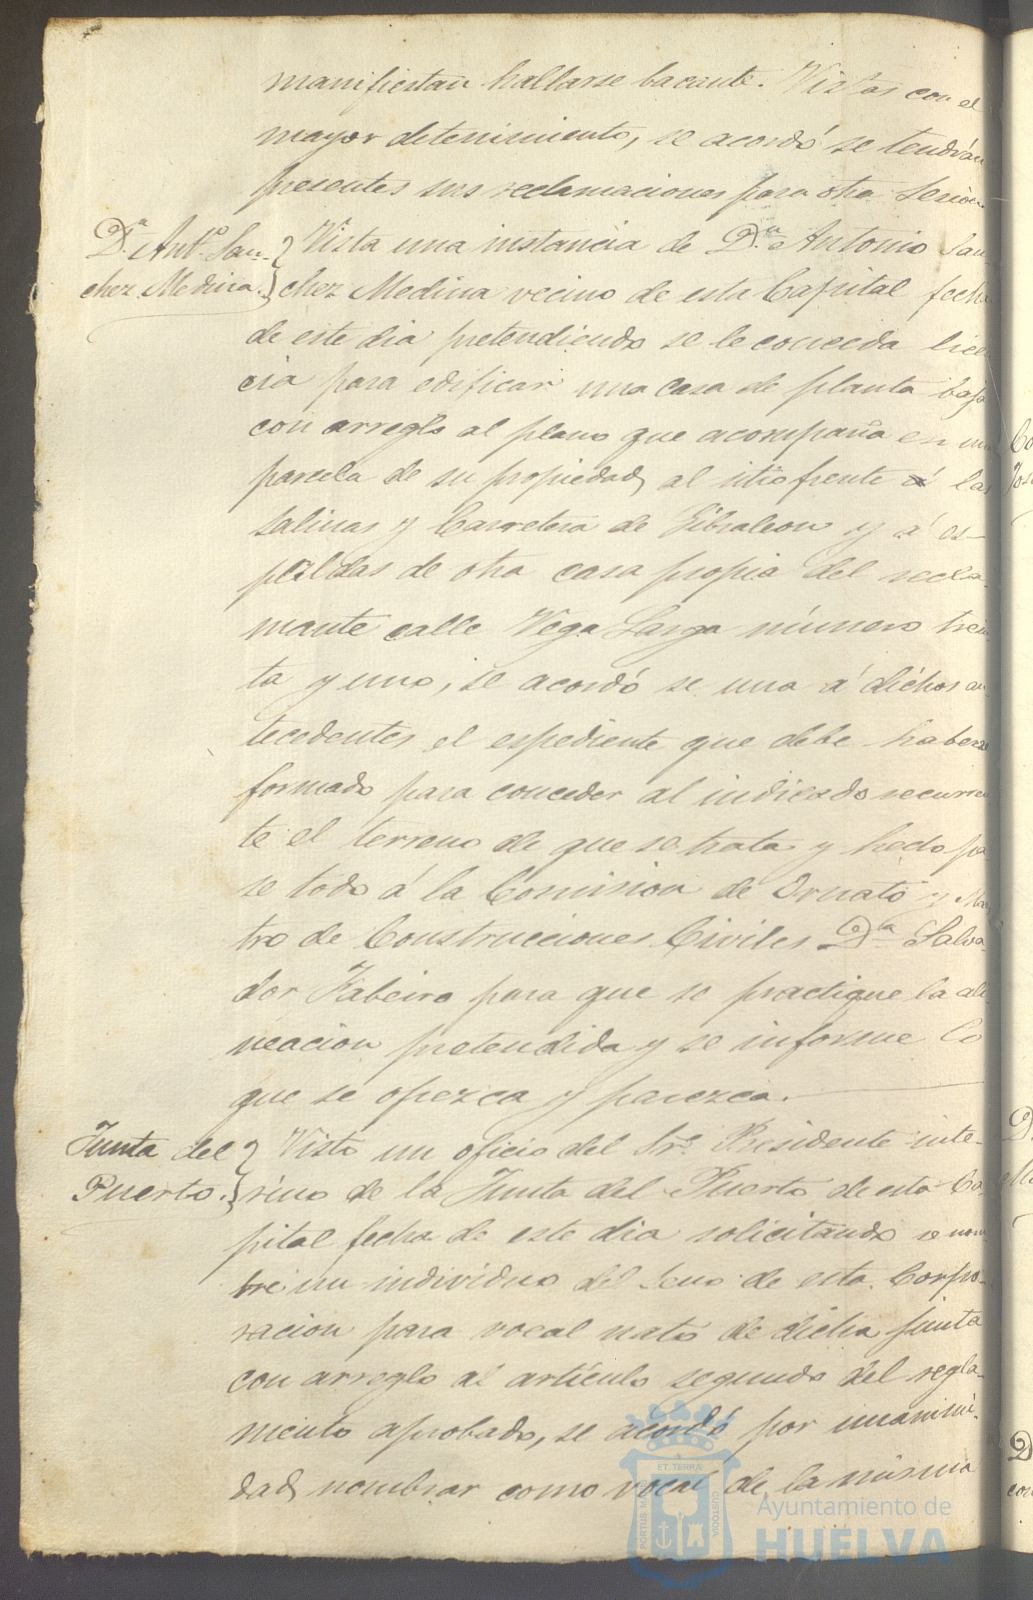 manifiestan hallarse bacante. Vistas con el
mayor detenimiento, se acordó se tendrán
presentes sus reclamaciones para otra Sesion
Dn. Anto. San-
chez Medina.
Vista una instancia de Dn. Antonio San-
chez Medina vecino de esta Capital fecha
de este dia pretendiendo se le conceda licen
cia para edificar una casa de planta baja
con arreglo al plano que acompaña en una
parcela de su propiedad, al sitio frente á las
Salinas y Carretera de Gibraleon y á es-
paldas de otra casa propia del recla-
mante calle Vega Larga número trein
ta y uno, se acordó se una á dichos an
tecedentes el espediente que debe haberse
formado para conceder al indicado recurren
te el terreno de que se trata y hecho pa
se todo á la Comision de Ornato y Maes
tro de Construcciones Civiles Dn. Salva-
dor para que se practique la ali
neacion pretendida y se informe lo
que se ofrezca y parezca.
Junta del
Puerto.
Visto un oficio del Sr. Presidente inte-
rino de la Junta del Puerto de esta Ca-
pital fecha de este dia solicitando se nom
bre un individuo del seno de esta Corpo-
racion para vocal nato de dicha junta
con arreglo al artículo segundo del regla-
mento aprobado, se acordó por unanimi-
dad nombrar como vocal de la misma
PORTUS MARIS
ET TERRÆ
CUSTODIA
Ayuntamiento de
HUELVA